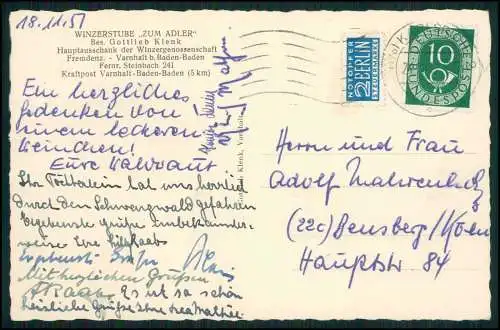 18.11.51
WINZERSTUBE „ZUM ADLER"
Bes. Gottlieb Klenk
Hauptausschank der Winzergenossenschaft
Fremdenz. - Varnhalt b. Baden-Baden
Fernr. Steinbach 241
Kraftpost Varnhalt-Baden-Baden (5 km)
Ein herzliches
gedenken von
einem leckeren
Weinchen!
Eure
Ihr Töchterlein hat uns herrlich
durch den Schwarzwald gefahren
Ergebenste Grüße
Eure
Ergebenste Grüße
Mit herzlichen Grüßen
Es ist so schön
Herzliche Grüße Ihre
Klenk, Varnhalt
NOTOPFER
2 BERLIN
STEUERMARKE
DEUTSCHE
10
BUNDESPOST
Herrn und Frau
Adolf
(22c) Bensberg/Köln
Hauptstr. 84